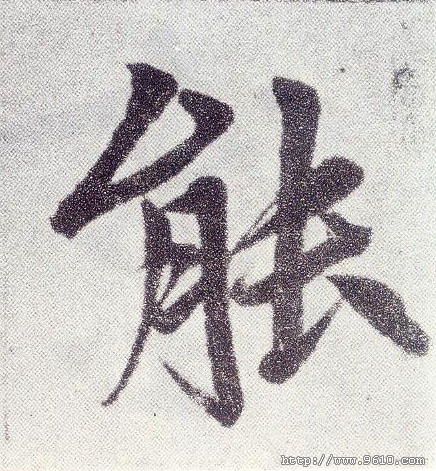 能
http://www.9610.com